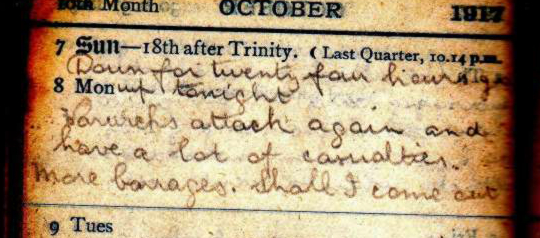 10th Month OCTOBER 1917
7 Sun—18th after Trinity. (Last Quarter, 10.14 p.m.
Down for twenty four hours
8 Mon up tonight
attack again and
have a lot of casualties.
More barrages. Shall I come out
9 Tues